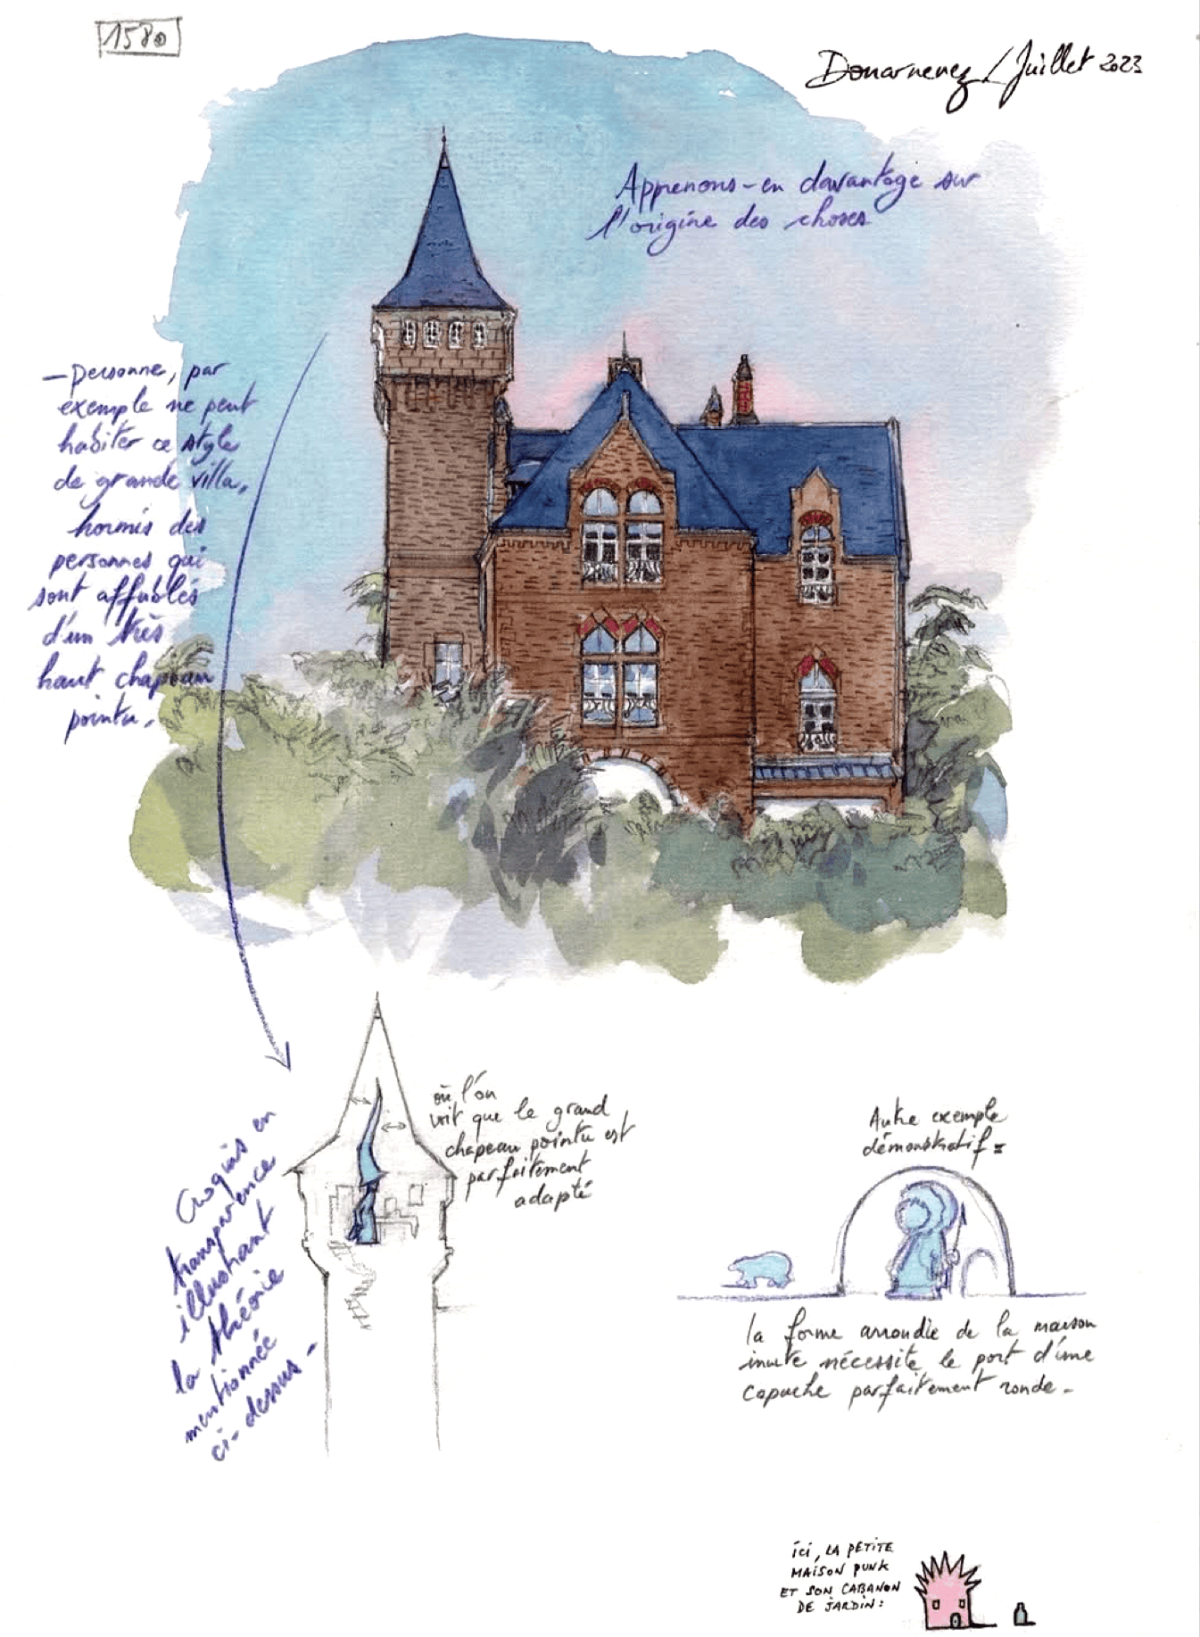 1580
Douarnenez / Juillet 2023
Apprenons-en davantage sur
l'origine des choses
— personne, par
exemple ne peut
habiter ce style
de grande villa,
hormis des
personnes qui
sont affublés
d'un très
haut chapeau
pointu.
Croquis en
transparence
illustrant
la théorie
mentionnée
ci-dessus -
où l'on
voit que le grand
chapeau pointu est
parfaitement
adapté
Autre exemple
démonstratif =
la forme arrondie de la maison
inuite nécessite le port d'une
capuche parfaitement ronde -
ici, LA PETITE
MAISON PUNK
ET SON CABANON
DE JARDIN :